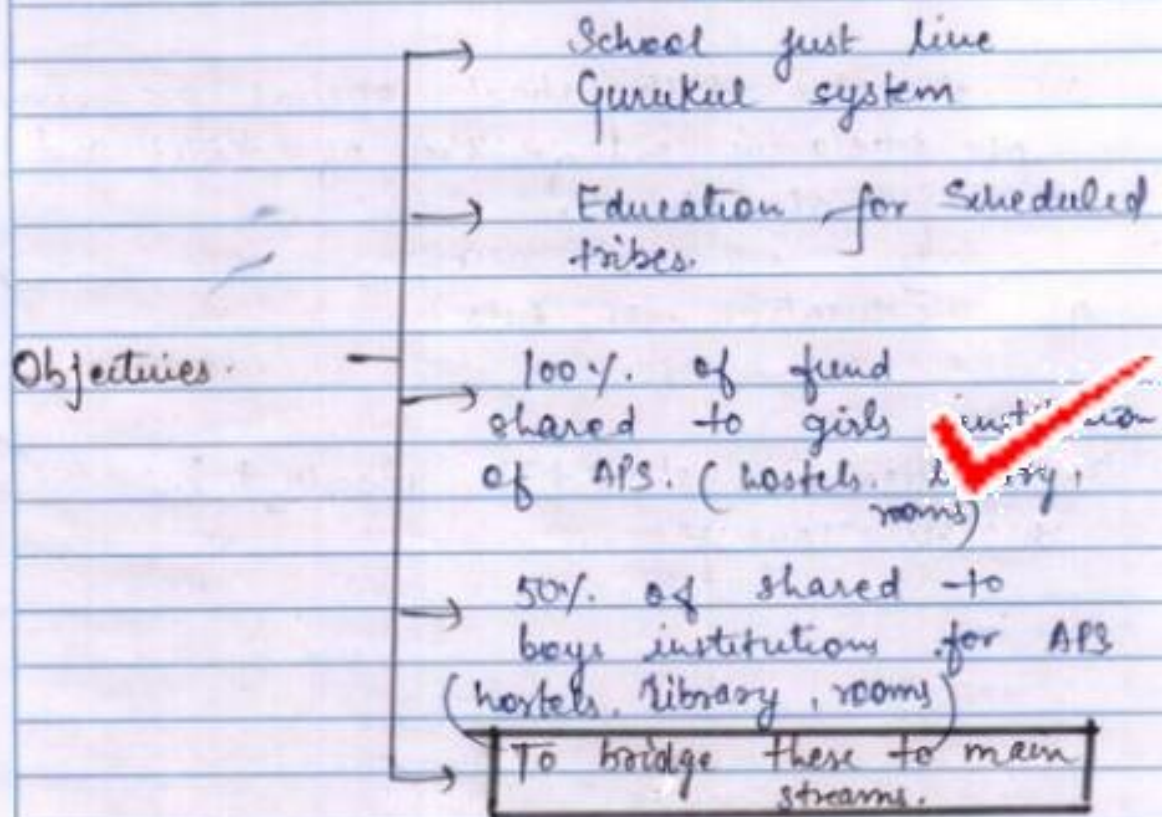 School just line
Gurukul system
Education for Scheduled
tribes.
Objectuies.
100%. of fund
shared to girls
of APS. (hostels.
rooms)
50%. of shared to
boys institutions for APS
(hostels, library, rooms)
To bridge these to main
streams.